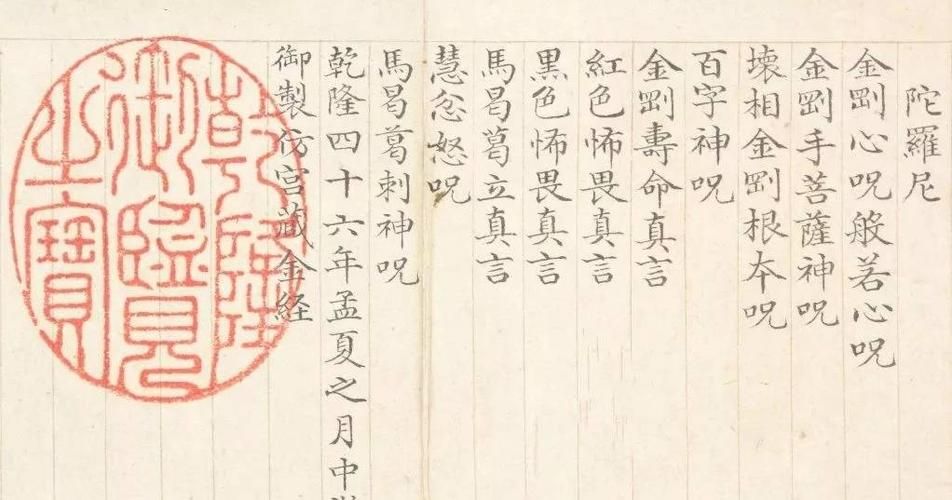 陀羅尼
金剛心呪般若心呪
金剛手菩薩神呪
壊相金剛根夲呪
百字神呪
金剛壽命真言
紅色怖畏真言
黒色怖畏真言
馬曷葛立真言
慧忿怒呪
馬曷葛刺神呪
乾隆四十六年孟夏之月中
御製仿宫藏金経
乾隆
御覽
之寳